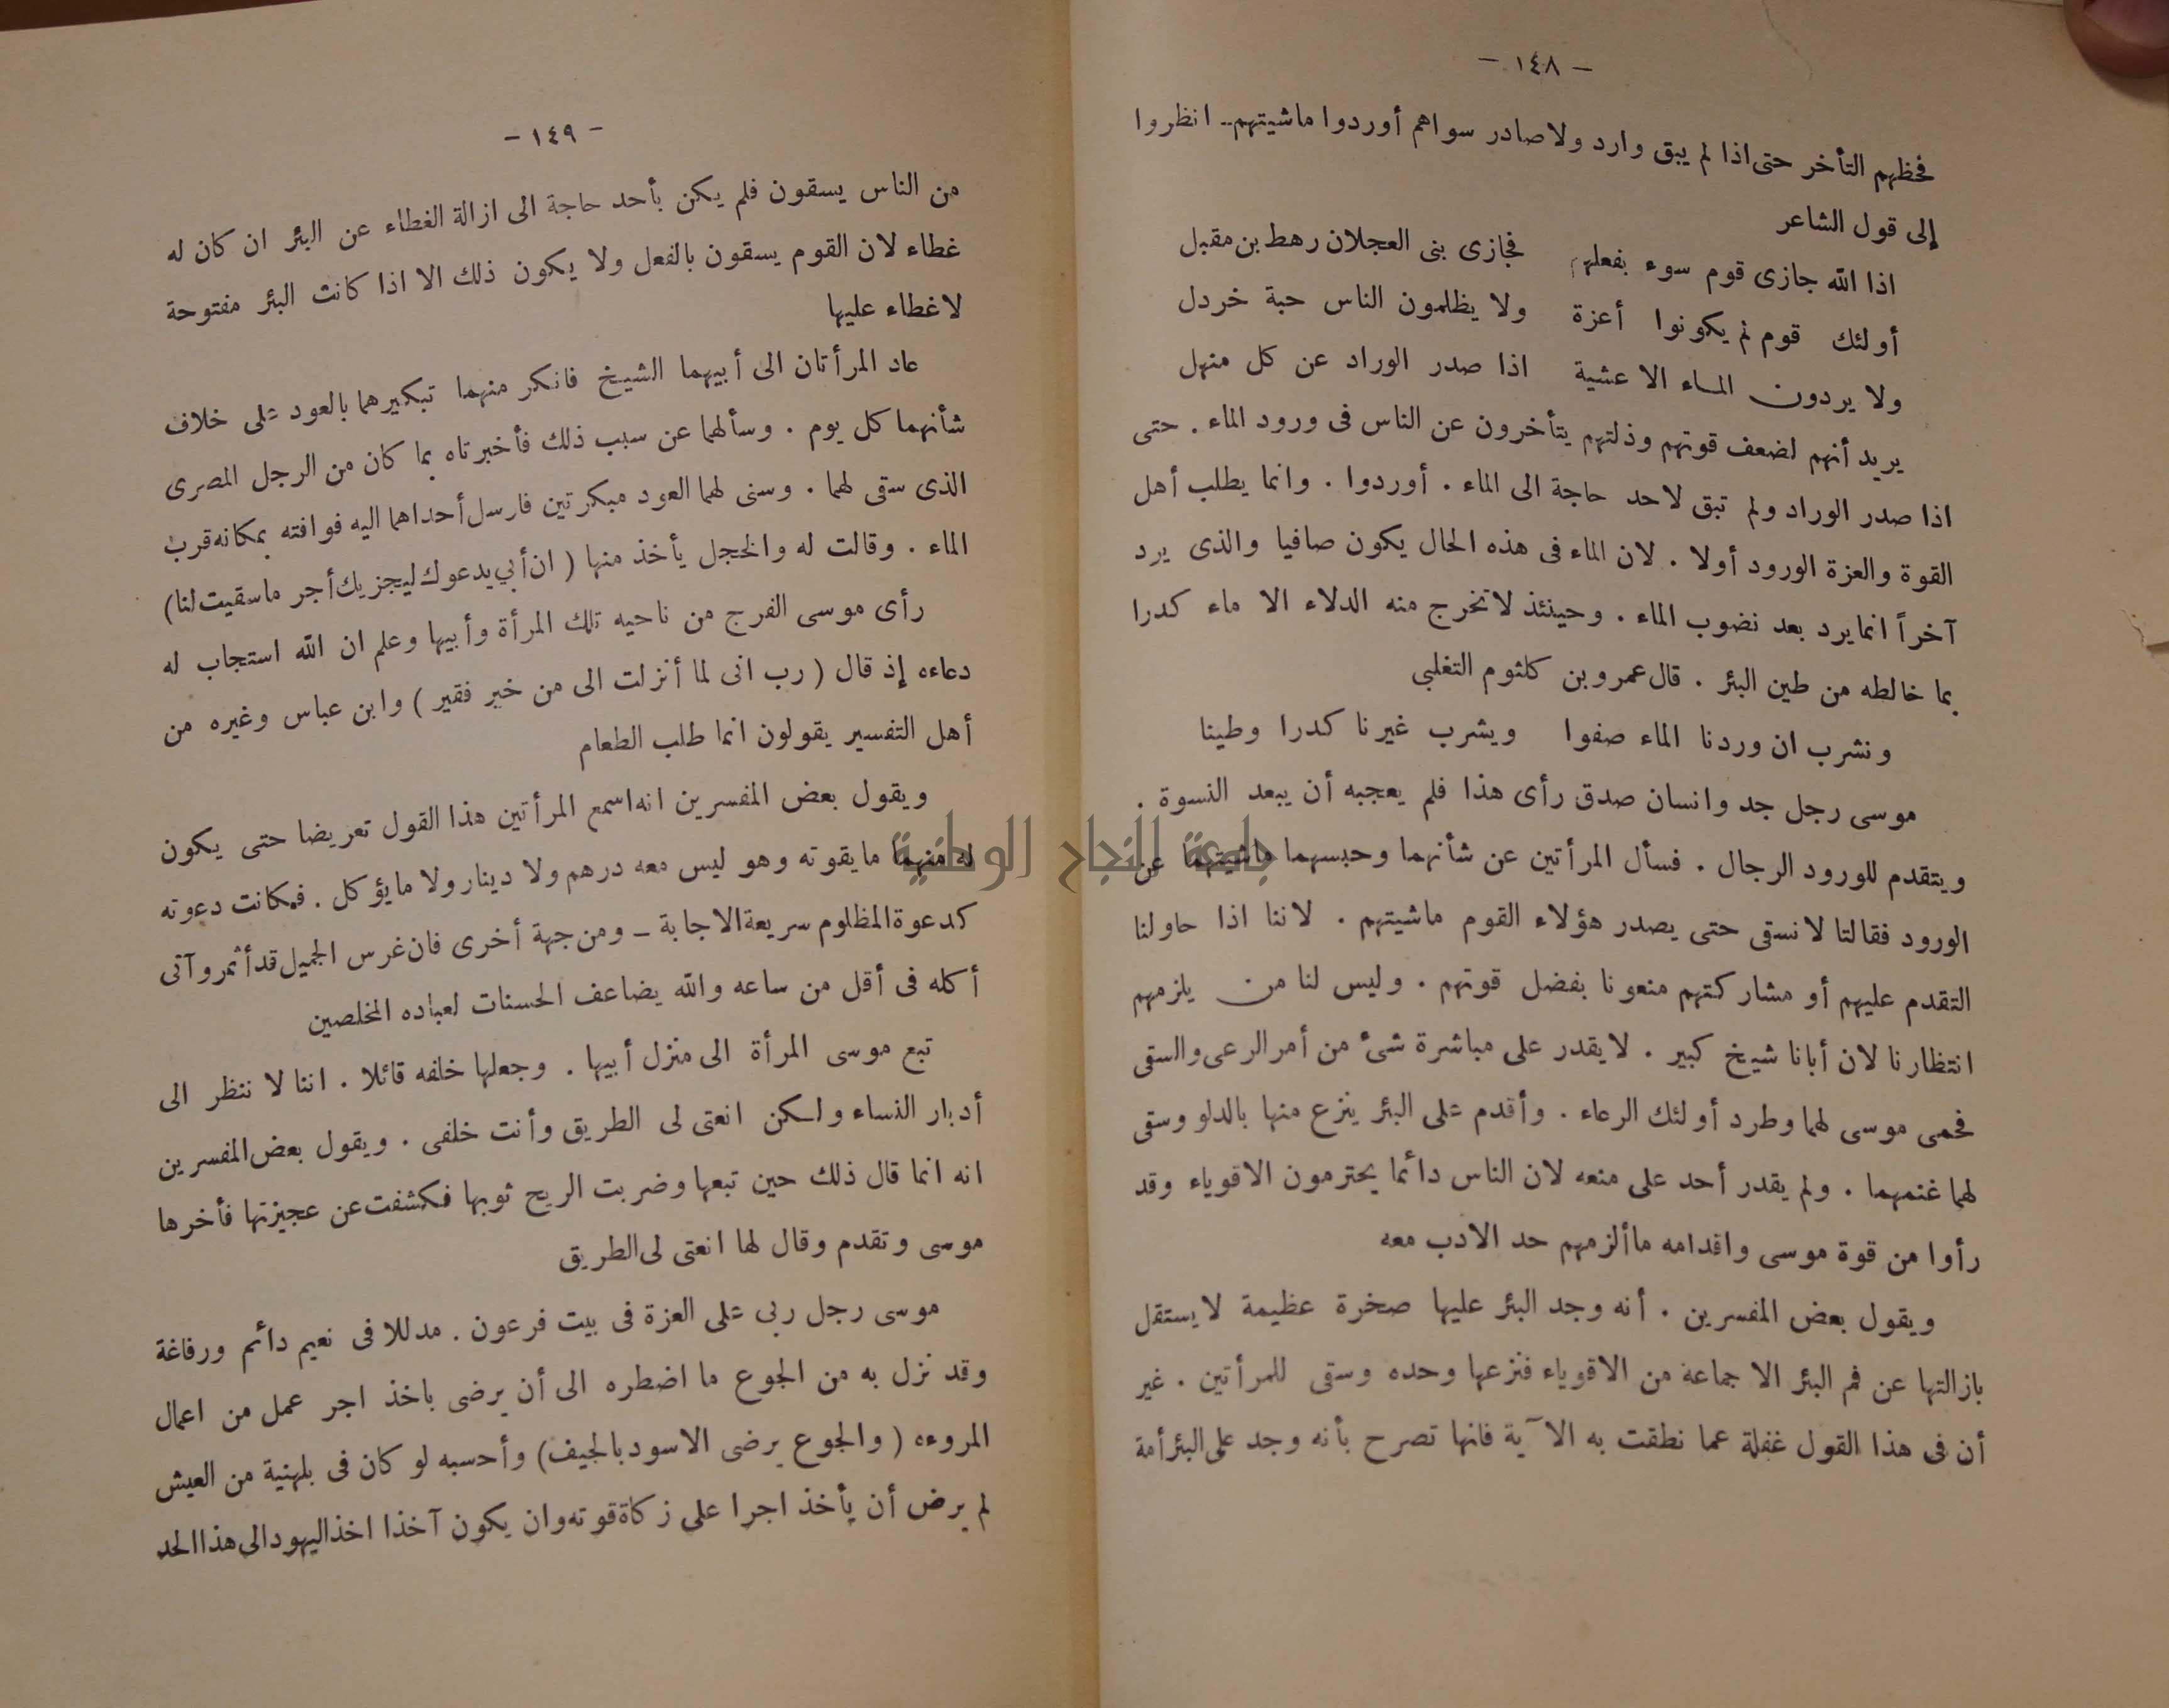 - ١٤٨ -
فحظهم التأخر حتى اذا لم يبق وارد ولا صادر سواهم أوردوا ماشيتهم.. انظروا
إلى قول الشاعر
اذا الله جازى قوم سوء بفعلهم فجازى بنى العجلان رهط بن مقبل
أولئك قوم لم يكونوا أعزة ولا يظلمون الناس حبة خردل
ولا يردون الماء الا عشية اذا صدر الوراد عن كل منهل
يريد أنهم لضعف قوتهم وذلتهم يتأخرون عن الناس فى ورود الماء . حتى
اذا صدر الوراد ولم تبق لاحد حاجة الى الماء . أوردوا . وانما يطلب أهل
القوة والعزة الورود أولا . لان الماء فى هذه الحال يكون صافيا والذى يرد
آخراً انما يرد بعد نضوب الماء . وحينئذ لا تخرج منه الدلاء الا ماء كدرا
بما خالطه من طين البئر . قال عمرو بن كلثوم التغلبى
ونشرب ان وردنا الماء صفوا ويشرب غيرنا كدرا وطينا
موسى رجل جد وانسان صدق رأى هذا فلم يعجبه أن يبعد النسوة .
ويتقدم للورود الرجال . فسأل المرأتين عن شأنهما وحبسهما ماشيتهما عن
الورود فقالتا لا نسقى حتى يصدر هؤلاء القوم ماشيتهم . لاننا اذا حاولنا
التقدم عليهم أو مشاركتهم منعونا بفضل قوتهم . وليس لنا من يلزمهم
انتظارنا لان أبانا شيخ كبير . لا يقدر على مباشرة شئ من أمر الرعى والسقى
فحمى موسى لهما وطرد أولئك الرعاء . وأقدم على البئر ينزع منها بالدلو وسقى
لهما غنمهما . ولم يقدر أحد على منعه لان الناس دائما يحترمون الاقوياء وقد
رأوا من قوة موسى واقدامه ما ألزمهم حد الادب معه
ويقول بعض المفسرين . أنه وجد البئر عليها صخرة عظيمة لا يستقل
بازالتها عن فم البئر الا جماعة من الاقوياء فنزعها وحده وسقى للمرأتين . غير
أن فى هذا القول غفلة عما نطقت به الآية فانها تصرح بأنه وجد على البئر أمة
- ١٤٩ -
من الناس يسقون فلم يكن بأحد حاجة الى ازالة الغطاء عن البئر ان كان له
غطاء لان القوم يسقون بالفعل ولا يكون ذلك الا اذا كانت البئر مفتوحة
لا غطاء عليها
عاد المرأتان الى أبيهما الشيخ فانكر منهما تبكيرهما بالعود على خلاف
شأنهما كل يوم . وسألهما عن سبب ذلك فأخبرتاه بما كان من الرجل المصرى
الذى سقى لهما . وسنى لهما العود مبكرتين فارسل أحداهما اليه فوافته بمكانه قرب
الماء . وقالت له والخجل يأخذ منها ( ان أبي يدعوك ليجزيك أجر ما سقيت لنا )
رأى موسى الفرج من ناحيه تلك المرأة وأبيها وعلم ان الله استجاب له
دعاءه إذ قال ( رب انى لما أنزلت الى من خير فقير ) وابن عباس وغيره من
أهل التفسير يقولون انما طلب الطعام
ويقول بعض المفسرين انه اسمع المرأتين هذا القول تعريضا حتى يكون
له منهما ما يقوته وهو ليس معه درهم ولا دينار ولا ما يؤكل . فكانت دعوته
كدعوة المظلوم سريعة الاجابة – ومن جهة أخرى فان غرس الجميل قد أثمر وآتى
أكله فى أقل من ساعه والله يضاعف الحسنات لعباده المخلصين
تبع موسى المرأة الى منزل أبيها . وجعلها خلفه قائلا . اننا لا ننظر الى
أدبار النساء ولكن انعتى لى الطريق وأنت خلفى . ويقول بعض المفسرين
انه انما قال ذلك حين تبعها وضربت الريح ثوبها فكشفت عن عجيزتها فأخرها
موسى وتقدم وقال لها انعتى لى الطريق
موسى رجل ربى على العزة فى بيت فرعون . مدللا فى نعيم دائم ورفاغة
وقد نزل به من الجوع ما اضطره الى أن يرضى باخذ اجر عمل من اعمال
المروءه ( والجوع يرضى الاسود بالجيف ) وأحسبه لو كان فى بلهنية من العيش
لم يرض أن يأخذ اجرا على زكاة قوته وان يكون آخذا اخذ اليهود الى هذا الحد
جامعة النجاح الوطنية